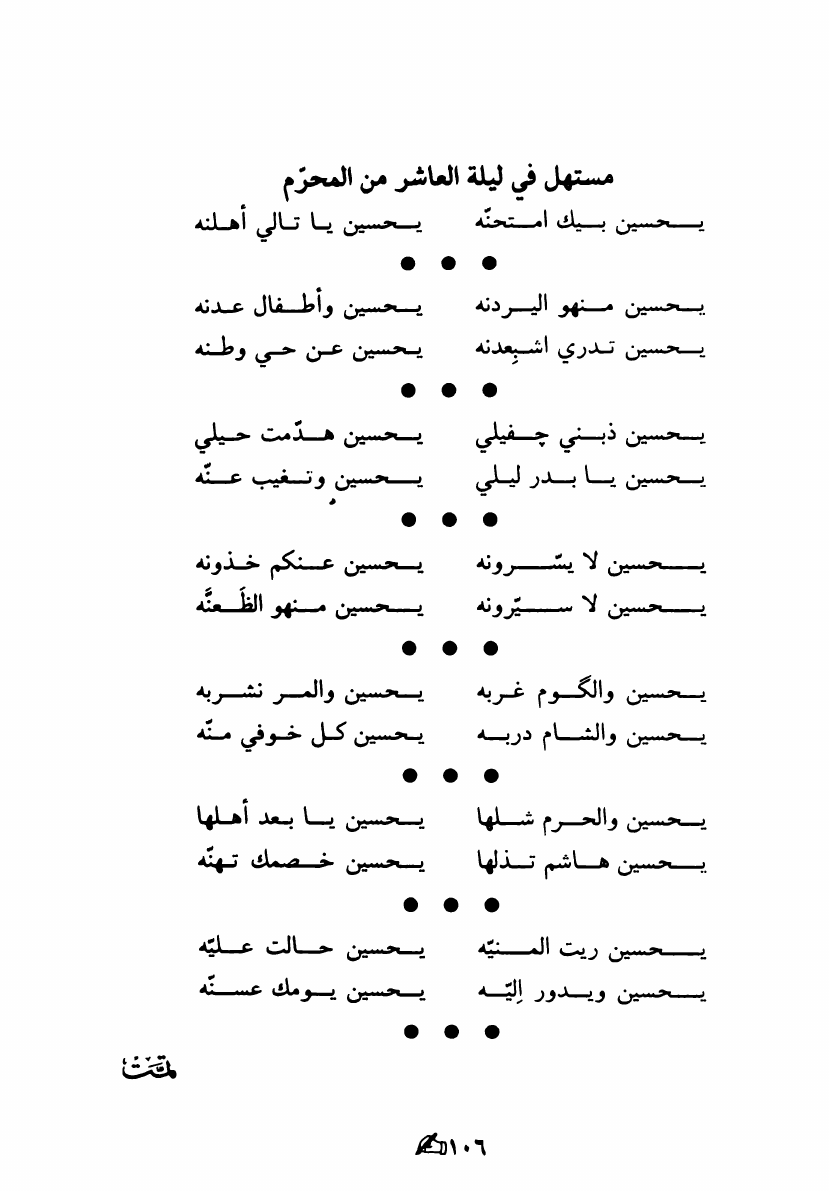 مستهل في ليلة العاشر من المحرّم
يـحسين بـيك امـتحنّه يـحسين يـا تـالي أهـلنه
● ● ●
يـحسين مـنهو اليـردنه يـحسين وأطـفال عـدنه
يـحسين تـدري اشـبِعدنه يـحسين عـن حـي وطـنه
● ● ●
يـحسين ذبـني چـفيلي يـحسين هـدّمت حـيلي
يـحسين يـا بـدر ليـلي يـحسين وتـغيب عـنّه
● ● ●
يـحسين لا يسّـرونه يـحسين عـنكم خـذونه
يـحسين لا سـيّرونه يـحسين مـنهو الظَـعنَّه
● ● ●
يـحسين والگـوم غـربه يـحسين والمـر نشـربه
يـحسين والشـام دربـه يـحسين كـل خـوفي مـنّه
● ● ●
يـحسين والحـرم شـلها يـحسين يـا بـعد أهـلها
يـحسين هـاشم تـذلها يـحسين خـصمك تـهنّه
● ● ●
يـحسين ريت المـنيّه يـحسين حـالت عـليّه
يـحسين ويـدور إليّـه يـحسين يـومك عسـنّه
● ● ●
تمّت
١٠٦